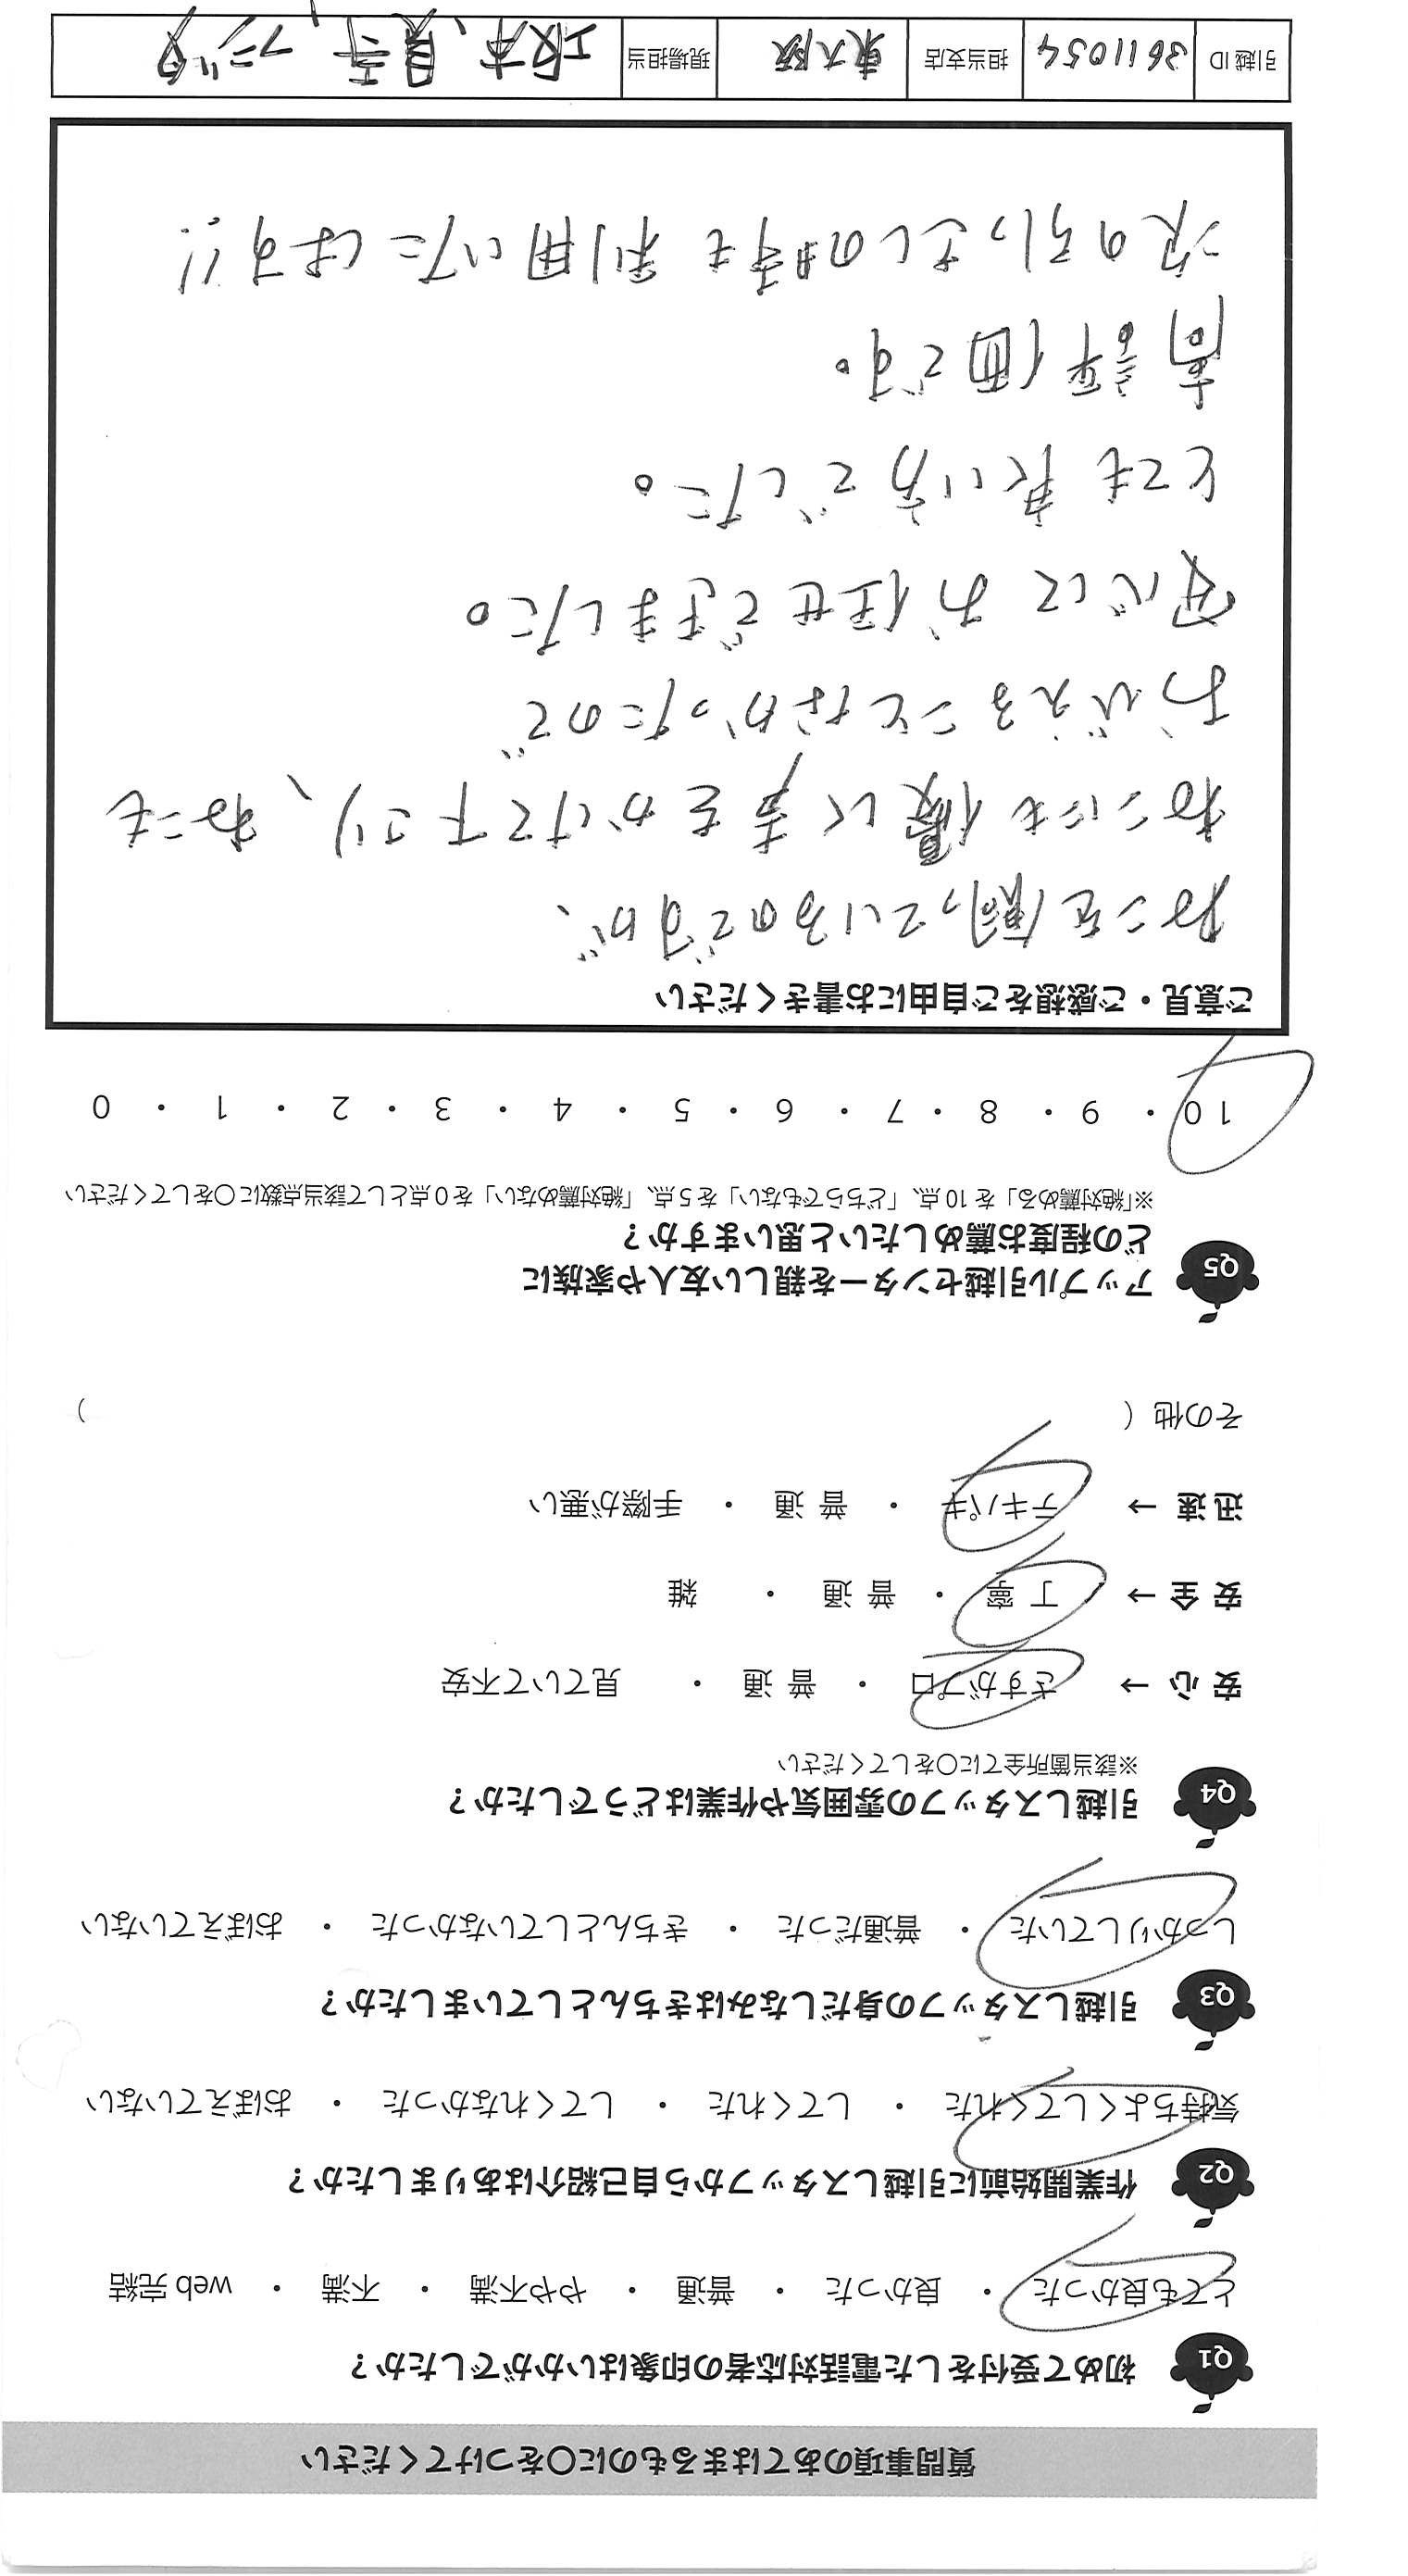 質問事項のあてはまるものに○をつけてください
Q1 初めて受付をした電話対応者の印象はいかがでしたか？
とても良かった ・ 良かった ・ 普通 ・ やや不満 ・ 不満 ・ web 完結
Q2 作業開始前に引越しスタッフから自己紹介はありましたか？
気持ちよくしてくれた ・ してくれた ・ してくれなかった ・ おぼえていない
Q3 引越しスタッフの身だしなみはきちんとしていましたか？
しっかりしていた ・ 普通だった ・ きちんとしていなかった ・ おぼえていない
Q4 引越しスタッフの雰囲気や作業はどうでしたか？
※該当箇所全てに○をしてください
安 心 → さすがプロ ・ 普 通 ・ 見ていて不安
安 全 → 丁 寧 ・ 普 通 ・ 雑
迅 速 → テキパキ ・ 普 通 ・ 手際が悪い
その他（ ）
Q5 アップル引越センターを親しい友人や家族に
どの程度お薦めしたいと思いますか？
※「絶対薦める」を 10 点、「どちらでもない」を 5 点、「絶対薦めない」を 0 点として該当点数に○をしてください
10 ・ 9 ・ 8 ・ 7 ・ 6 ・ 5 ・ 4 ・ 3 ・ 2 ・ 1 ・ 0
ご意見・ご感想をご自由にお書きください
ねこを飼っているのですが、
ねこにも優しく声をかけて下さり、ねこも
おびえることなかったので
安心にお任せできました。
とても良い方でした。
高評価です。
次の引っこしの時も利用いたします!!
引越 ID 3611054 担当支店 東大阪 現場担当 坂本、夏寺、フジタ